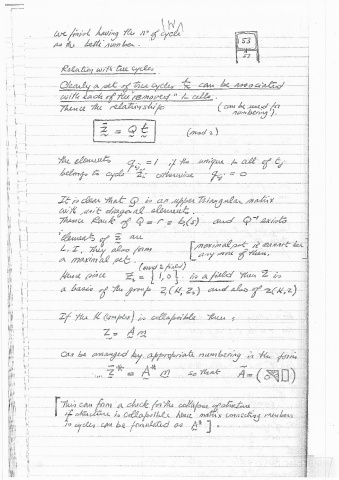 We finish having the no of cycle
as the betti number.
53
53
Relation with tree cycles
Clearly a set of tree cycles t can be associated
with each of the "removed" 1-cells.
Thence the relationship (can be used for
numbering).
z = Q t (mod 2)
The elements qij = 1 if the unique 1 cell of tj
belongs to cycle zi otherwise qij = 0
It is clear that Q is an upper triangular matrix
with unit diagonal elements.
Thence Rank of Q = r = b1(s) and Q-1 exists
elements of z are
L.I. They also form
a maximal set.
[maximal set is cannot be
any more of them.
(mod 2 field)
Hence since Z2 = {1, 0} is a field then Z is
a basis of the group Z1(K, Z2) and also of Z(K, Z)
If the K (complex) is collapsible then:
z = A m
can be arranged by appropriate numbering in the form
z* = A* m so that A = ( )
[This can form a check for the collapse of structure
if structure is collapsible hence matrix connecting members
to cycles can be formulated as A*].